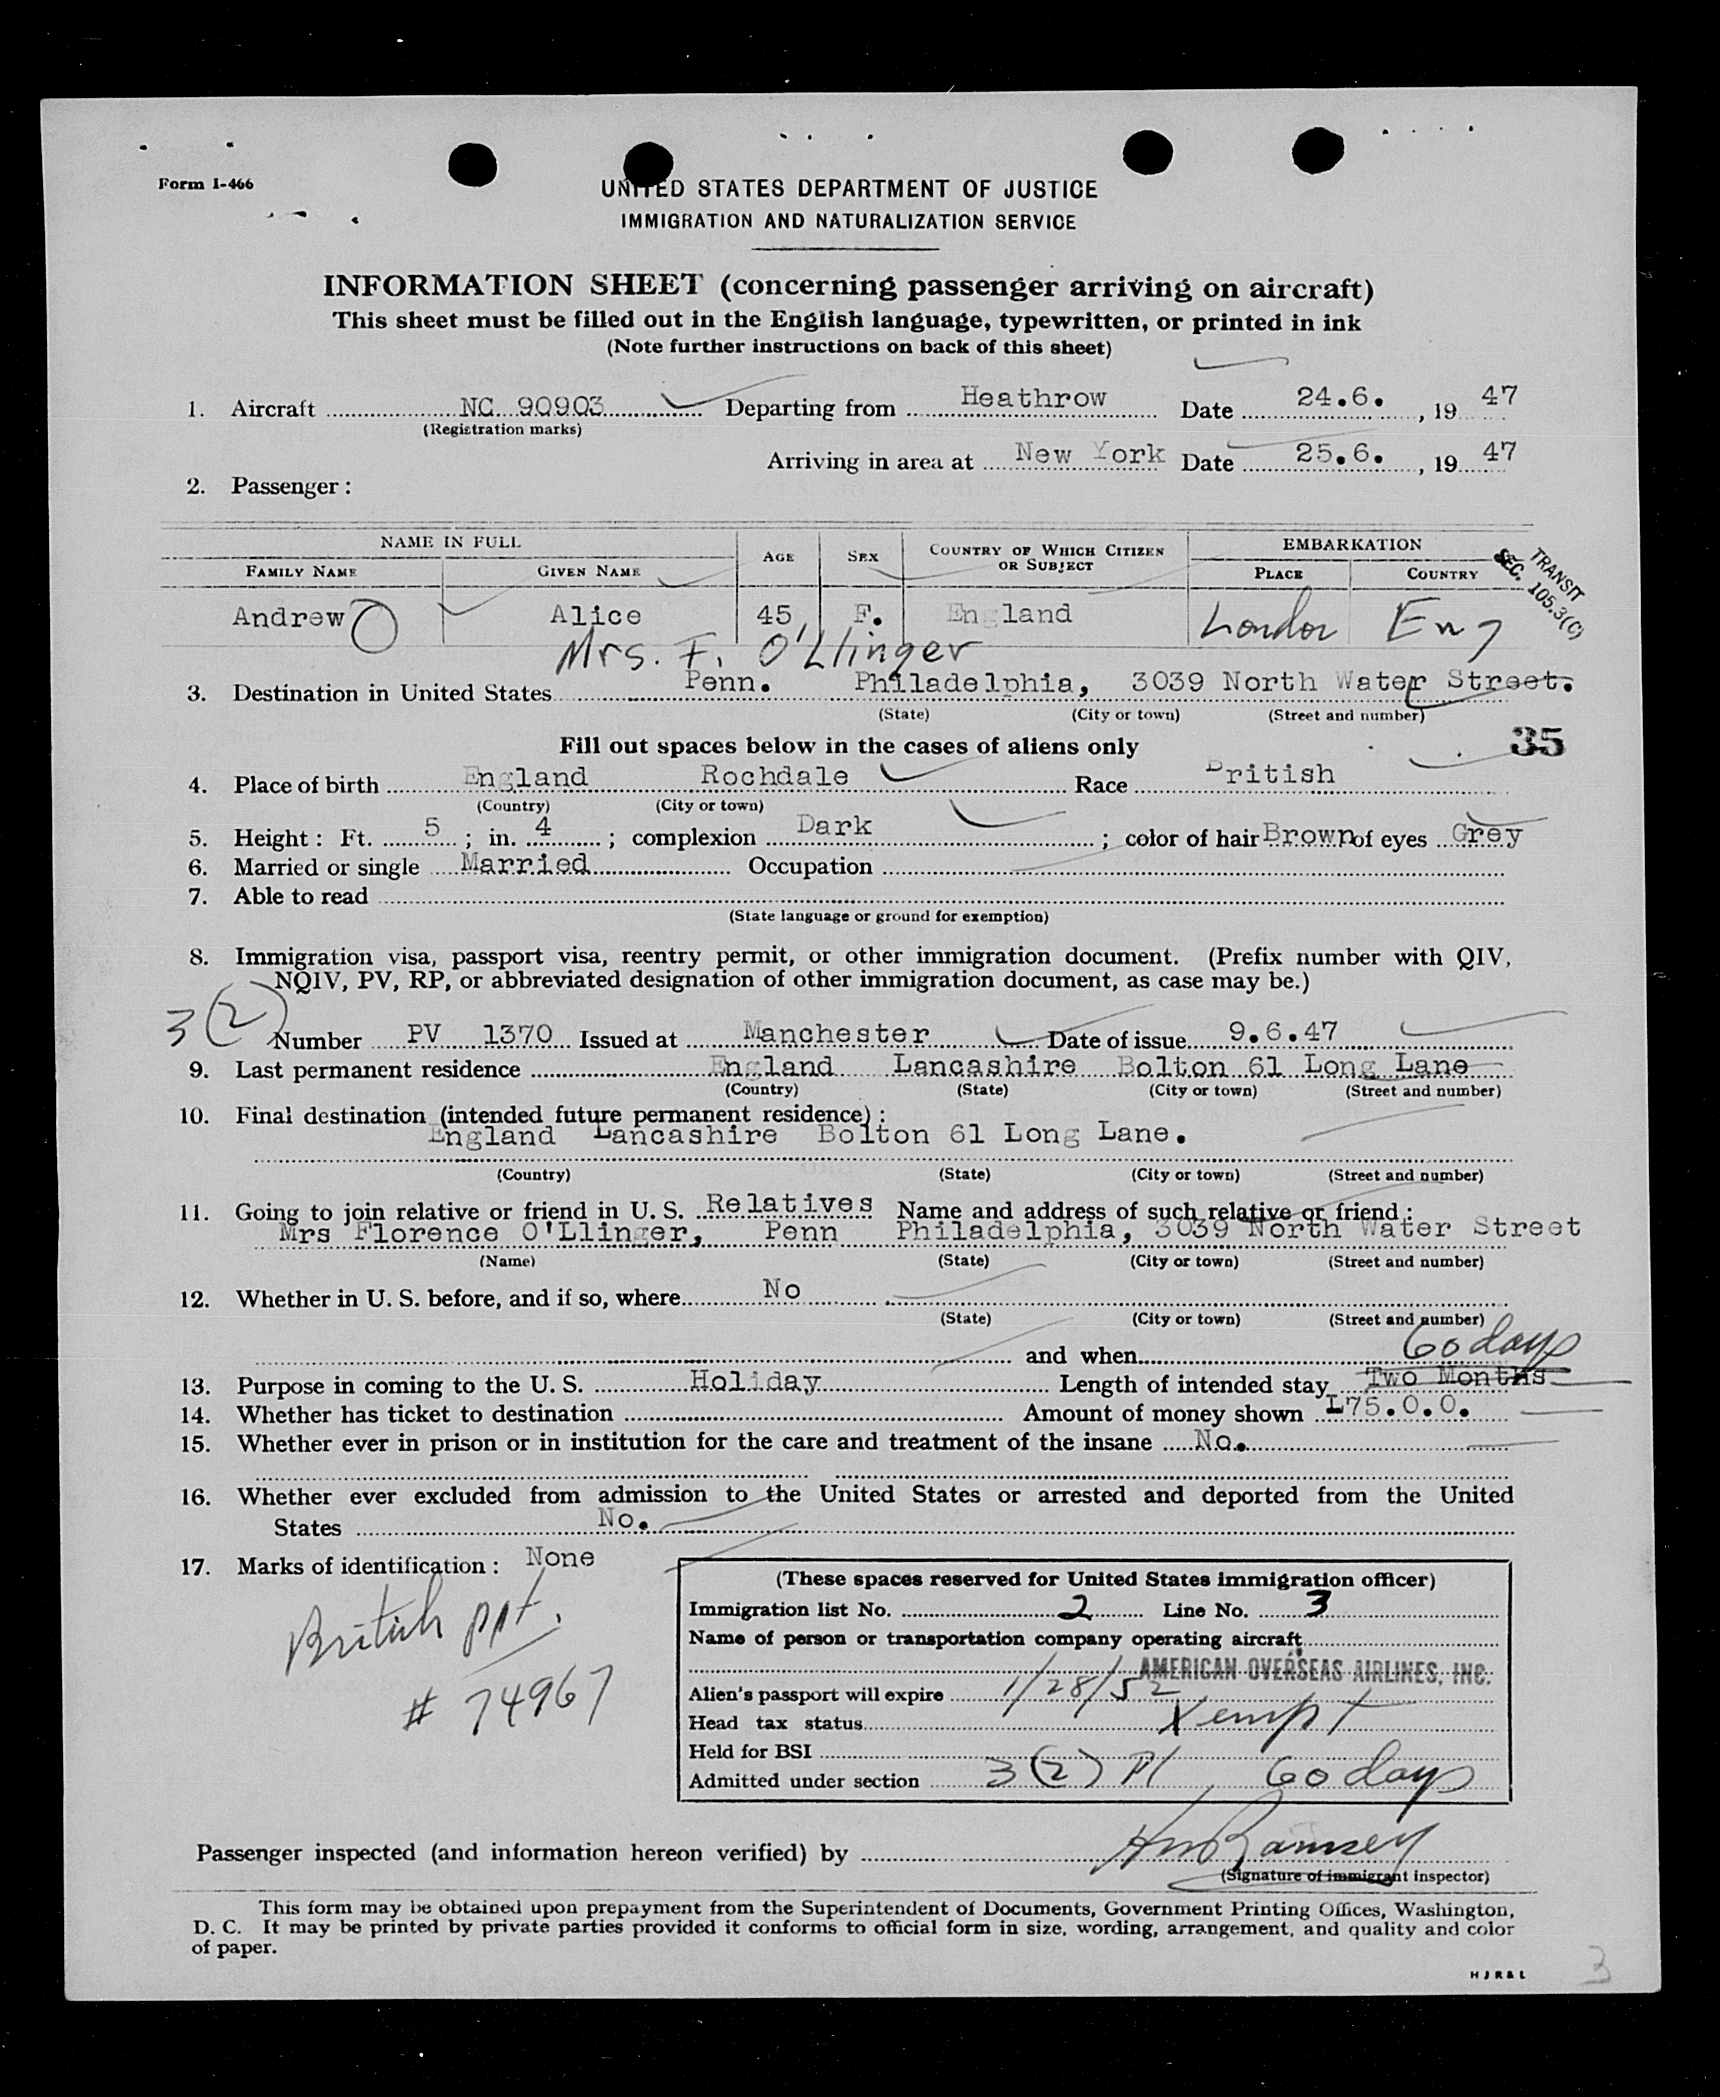 Form I-466
UNITED STATES DEPARTMENT OF JUSTICE
IMMIGRATION AND NATURALIZATION SERVICE
INFORMATION SHEET (concerning passenger arriving on aircraft)
This sheet must be filled out in the English language, typewritten, or printed in ink
(Note further instructions on back of this sheet)
1. Aircraft NC 90903 Departing from Heathrow Date 24.6. , 19 47
(Registration marks)
Arriving in area at New York Date 25.6. , 19 47
2. Passenger :
NAME IN FULL AGE SEX COUNTRY OF WHICH CITIZEN OR SUBJECT EMBARKATION
FAMILY NAME GIVEN NAME PLACE COUNTRY
TRANSIT
SEC. 105.3(C)
Andrew Alice 45 F. England London Eng
Mrs. F. O'Llinger
3. Destination in United States Penn. Philadelphia, 3039 North Water Street.
(State) (City or town) (Street and number)
Fill out spaces below in the cases of aliens only 35
4. Place of birth England Rochdale Race British
(Country) (City or town)
5. Height : Ft. 5 ; in. 4 ; complexion Dark ; color of hair Brown of eyes Grey
6. Married or single Married Occupation
7. Able to read
(State language or ground for exemption)
8. Immigration visa, passport visa, reentry permit, or other immigration document. (Prefix number with QIV,
NQIV, PV, RP, or abbreviated designation of other immigration document, as case may be.)
3(2) Number PV 1370 Issued at Manchester Date of issue 9.6.47
9. Last permanent residence England Lancashire Bolton 61 Long Lane
(Country) (State) (City or town) (Street and number)
10. Final destination (intended future permanent residence) :
England Lancashire Bolton 61 Long Lane.
(Country) (State) (City or town) (Street and number)
11. Going to join relative or friend in U. S. Relatives Name and address of such relative or friend :
Mrs Florence O'Llinger, Penn Philadelphia, 3039 North Water Street
(Name) (State) (City or town) (Street and number)
12. Whether in U. S. before, and if so, where No
(State) (City or town) (Street and number)
and when 60 days
13. Purpose in coming to the U. S. Holiday Length of intended stay Two Months
14. Whether has ticket to destination Amount of money shown L75.0.0.
15. Whether ever in prison or in institution for the care and treatment of the insane No.
16. Whether ever excluded from admission to the United States or arrested and deported from the United
States No.
17. Marks of identification : None
British ppt.
# 74967
(These spaces reserved for United States immigration officer)
Immigration list No. 2 Line No. 3
Name of person or transportation company operating aircraft
AMERICAN OVERSEAS AIRLINES, INC.
Alien's passport will expire 1/28/52
Head tax status Xempt
Held for BSI
Admitted under section 3(2) Pl 60 days
Passenger inspected (and information hereon verified) by Ramsey
(Signature of immigrant inspector)
This form may be obtained upon prepayment from the Superintendent of Documents, Government Printing Offices, Washington,
D. C. It may be printed by private parties provided it conforms to official form in size, wording, arrangement, and quality and color
of paper.
H J R & L
3